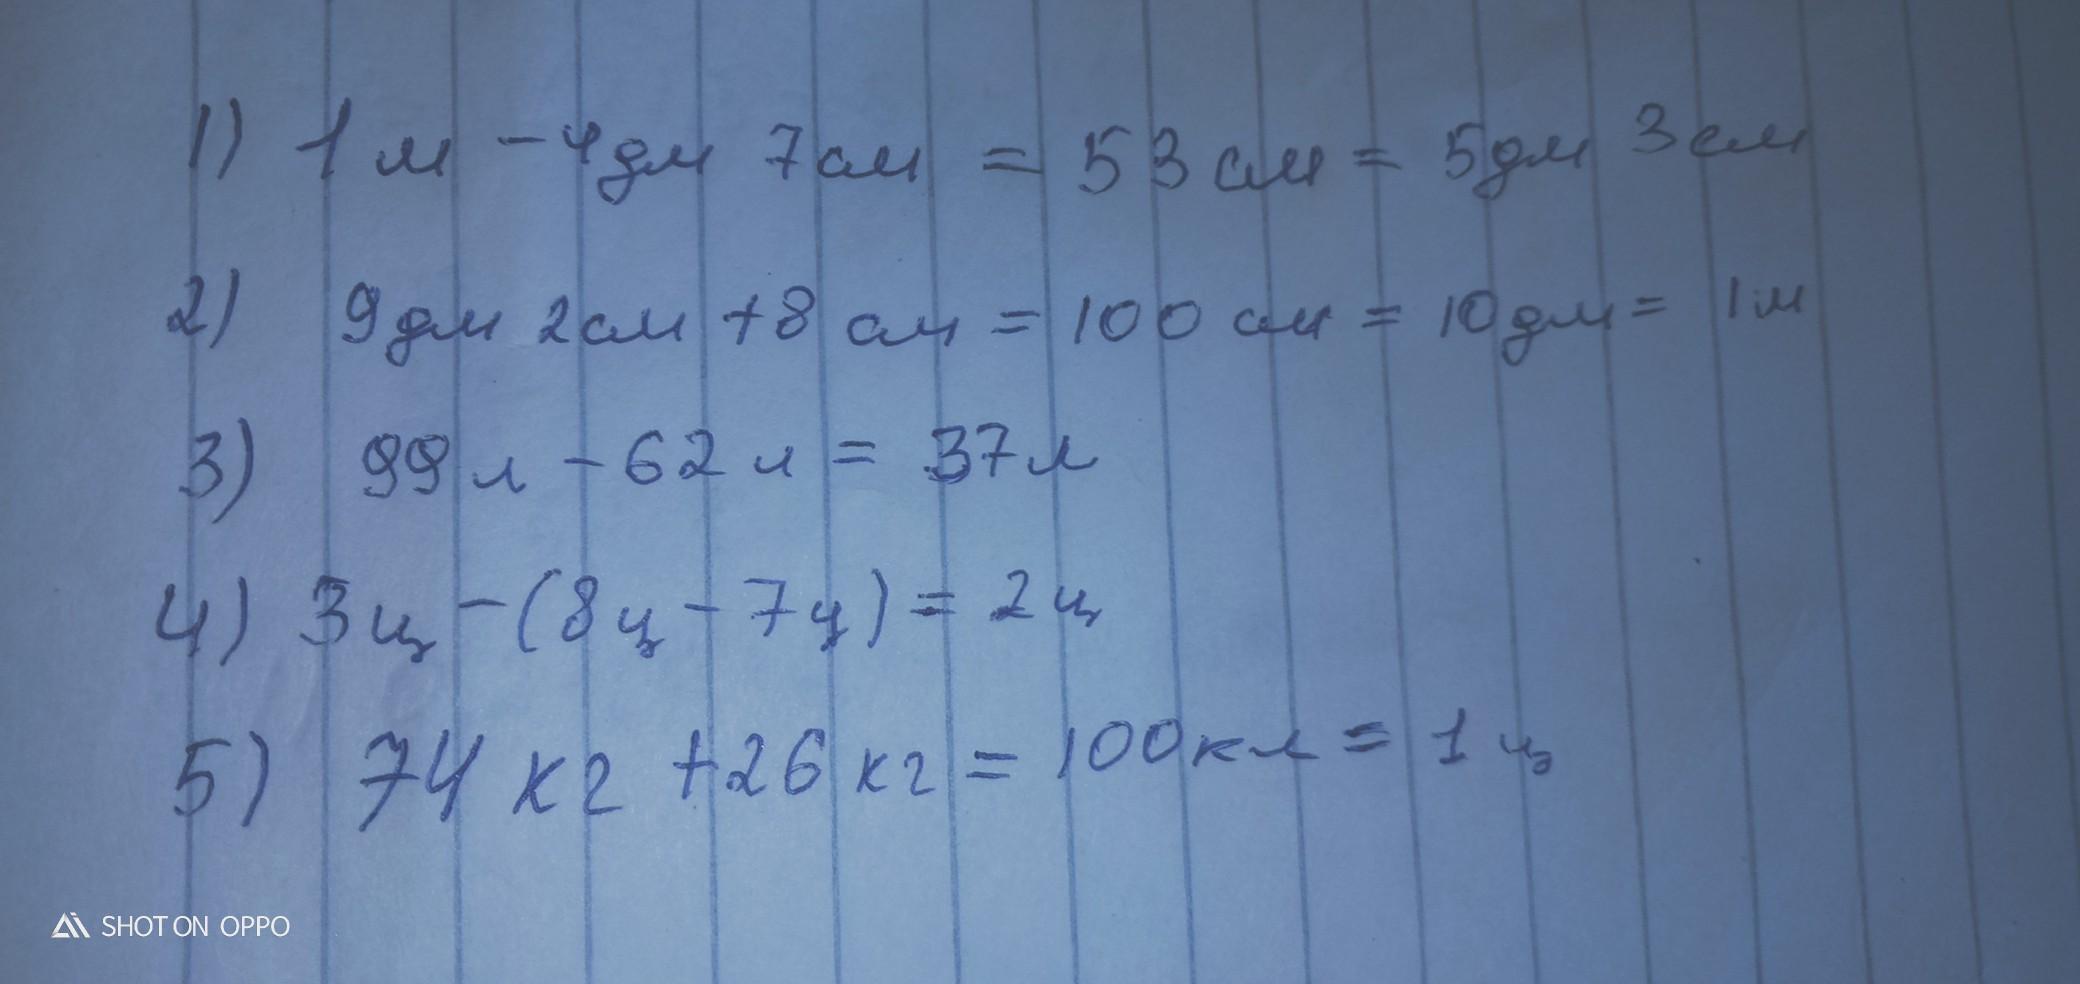 1) 1 м - 4дм 7см = 53 см = 5дм 3см
2) 9дм 2см + 8 см = 100 см = 10дм = 1м
3) 99 л - 62 л = 37л
4) 3ц - (8ц - 7ц) = 2ц
5) 74 кг + 26 кг = 100кл = 1 ц
SHOT ON OPPO